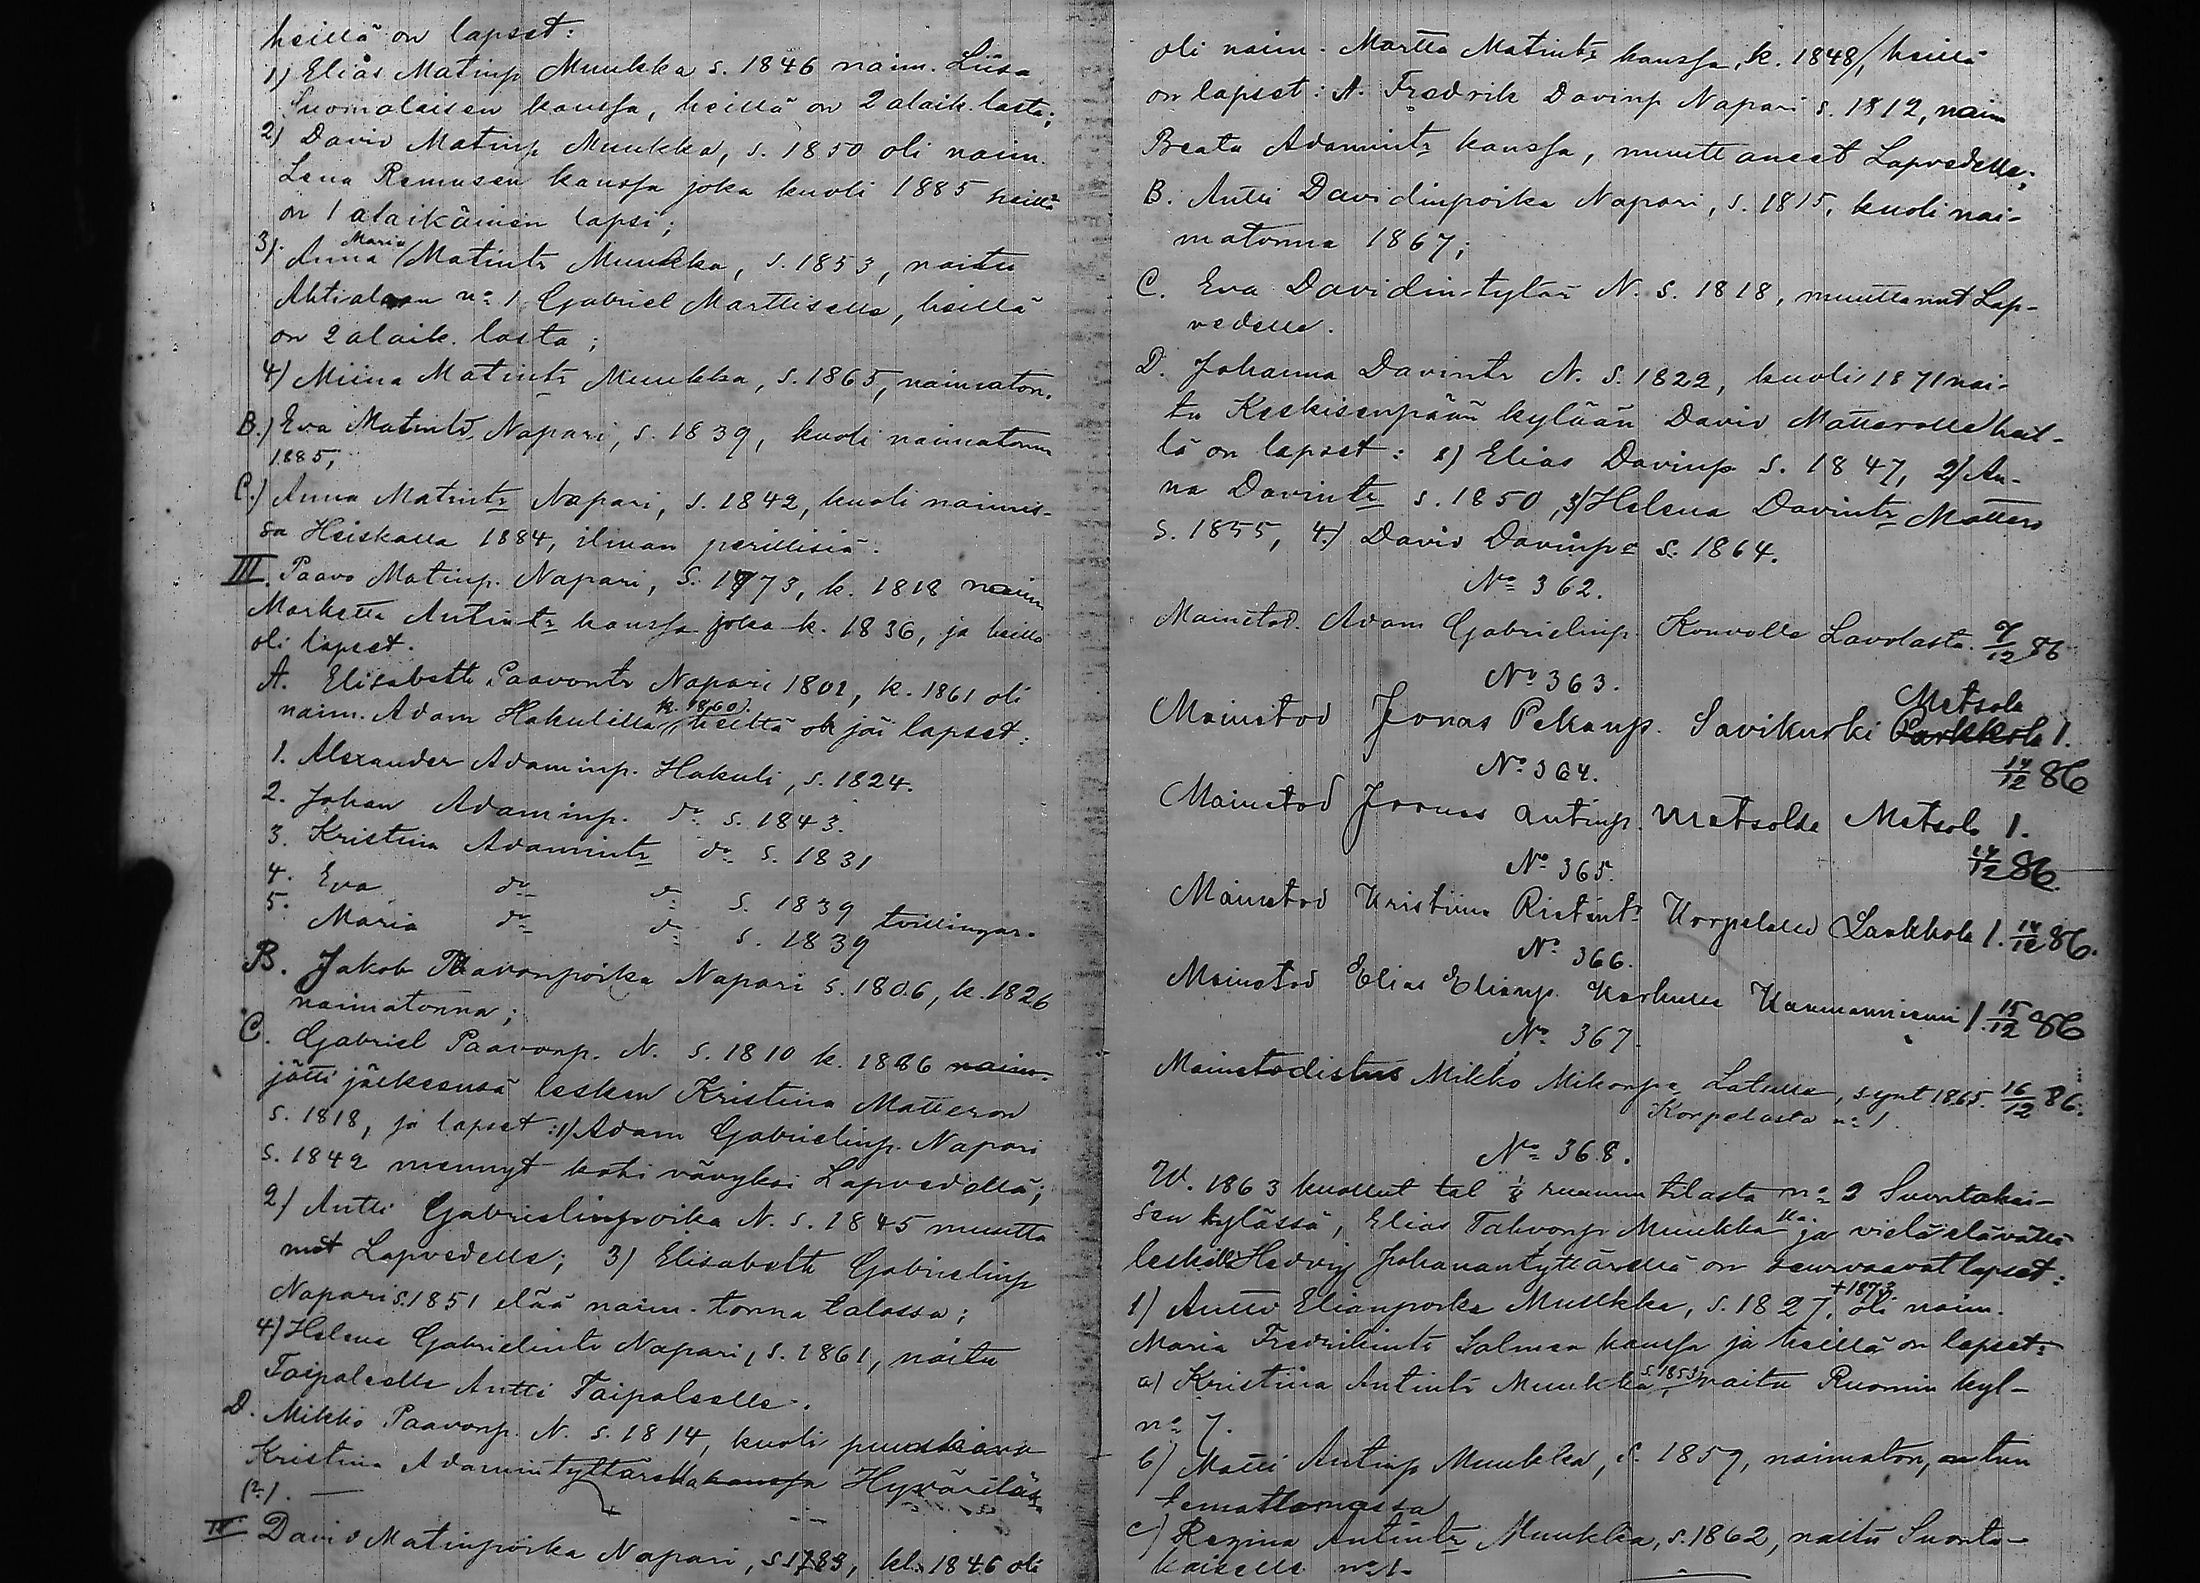 heillä on lapset:
1) Elias Matinp Muukka s. 1846 naim. Liisa
Suomalaisen kanssa, heillä on 2 alaik. lasta;
2) David Matinp Muukka, s. 1850 oli naim.
Lena Remusen kanssa joka kuoli 1885 heillä
on 1 alaikäinen lapsi;
3) Anna Maria Matintr Muukka, s. 1853, naitu
Ahtialaan no 1 Gabriel Marttiselle, heillä
on 2 alaik. lasta;
4) Miina Matintr Muukka, s. 1865, naimaton.
B.) Eva Matintr Napari, s. 1839, kuoli naimatonna
1885;
C.) Anna Matintr Napari, s. 1842, kuoli naimis-
sa Heiskalla 1884, ilman perillisiä.
III. Paavo Matinp. Napari, s. 1773, k. 1818 naim
Marketta Antintr kanssa joka k. 1836, ja heillä
oli lapset.
A. Elisabeth Paavontr Napari 1801, k. 1861 oli
naim. Adam Hakulilla k. 1860. heiltä jäi lapset:
1. Alexander Adaminp. Hakuli, s. 1824.
2. Johan Adaminp. do s. 1843.
3. Kristina Adamintr do s. 1831
4. Eva do do s. 1839
5. Maria do do s. 1839 tvillingar.
B. Jakob Paavonpoika Napari s. 1806, k. 1826
naimatonna;
C. Gabriel Paavonp. N. s. 1810 k. 1886 naim.
jätti jälkeensä lesken Kristina Matteron
s. 1818, ja lapset: 1) Adam Gabrielinp. Napari
s. 1842 mennyt koti vävyksi Lapvedellä;
2) Antti Gabrielinpoika N. s. 1845 muutta
nut Lapvedelle; 3) Elisabeth Gabrielinp
Napari s. 1851 elää naim. tonna talossa;
4) Helena Gabrielintr Napari, s. 1861, naitu
Taipaleelle Antti Taipaleelle.
D. Mikko Paavonp. N. s. 1814, kuoli
Kristina Adamintyttärellä kanssa Hyväriläs
(?)
IV David Matinpoika Napari, s. 1783, kl. 1846 oli
oli naim. Martta Matintr kanssa, k. 1848/, heillä
on lapset: A. Fredrik Davinp Napari s. 1812, naim
Beata Adamintr kanssa, muuttaneet Lapvedelle;
B. Antti Davidinpoika Napari, s. 1815, kuoli nai-
matonna 1867;
C. Eva Davidin-tytär N. s. 1818, muuttanut Lap-
vedelle.
D. Johanna Davintr N. s. 1822, kuoli 1871 nai-
tu Keskisenpään kylään David Matterolle heil-
lä on lapset: 1) Elias Davinp s. 1847, 2) An-
na Davintr s. 1850, 3) Helena Davintr Mattero
s. 1855, 4.) David Davinp s. 1864.
No 362.
Mainetod. Adam Gabrielinp. Konvolle Lavolasta. 7/12 86
No 363.
Mainetod Jonas Pekanp. Savikurki Parkkola Metsola 1.
14/12 86
No 364.
Mainetod Joonas Antinp. Metsolle Metsola 1.
14/12 86.
No 365.
Mainetod Kristiina Ristintr Korpelalle Laukkola 1. 14/12 86.
No 366.
Mainetod Elias Elianp. Karhulle Kaumanniemi 1. 15/12 86
No 367.
Mainetodistus Mikko Mikonp Latulle, synt 1865. 16/12 86.
Korpelasta no 1.
No 368.
W. 1863 kuollut tal 1/8 ruunun tilasta no 2 Suontakai-
sen kylässä, Elias Tahvonp Muukka lla ja vielä elävällä
leskellä Hedvig Johanantyttärellä on seuraavat lapset:
1) Antti Elianpoika Muukka, s. 1827, +1873. oli naim.
Maria Fredrikintr Salmen kanssa ja heillä on lapset:
a) Kristina Antintr Muukka, s. 1853 naitu Ruomin kyl-
no 7.
b) Matti Antinp Muukka, s. 1859, naimaton, on tun
temattomassa
c) Regina Antintr Muukka, s. 1862, naitu Suonta-
kaiselle no 1.